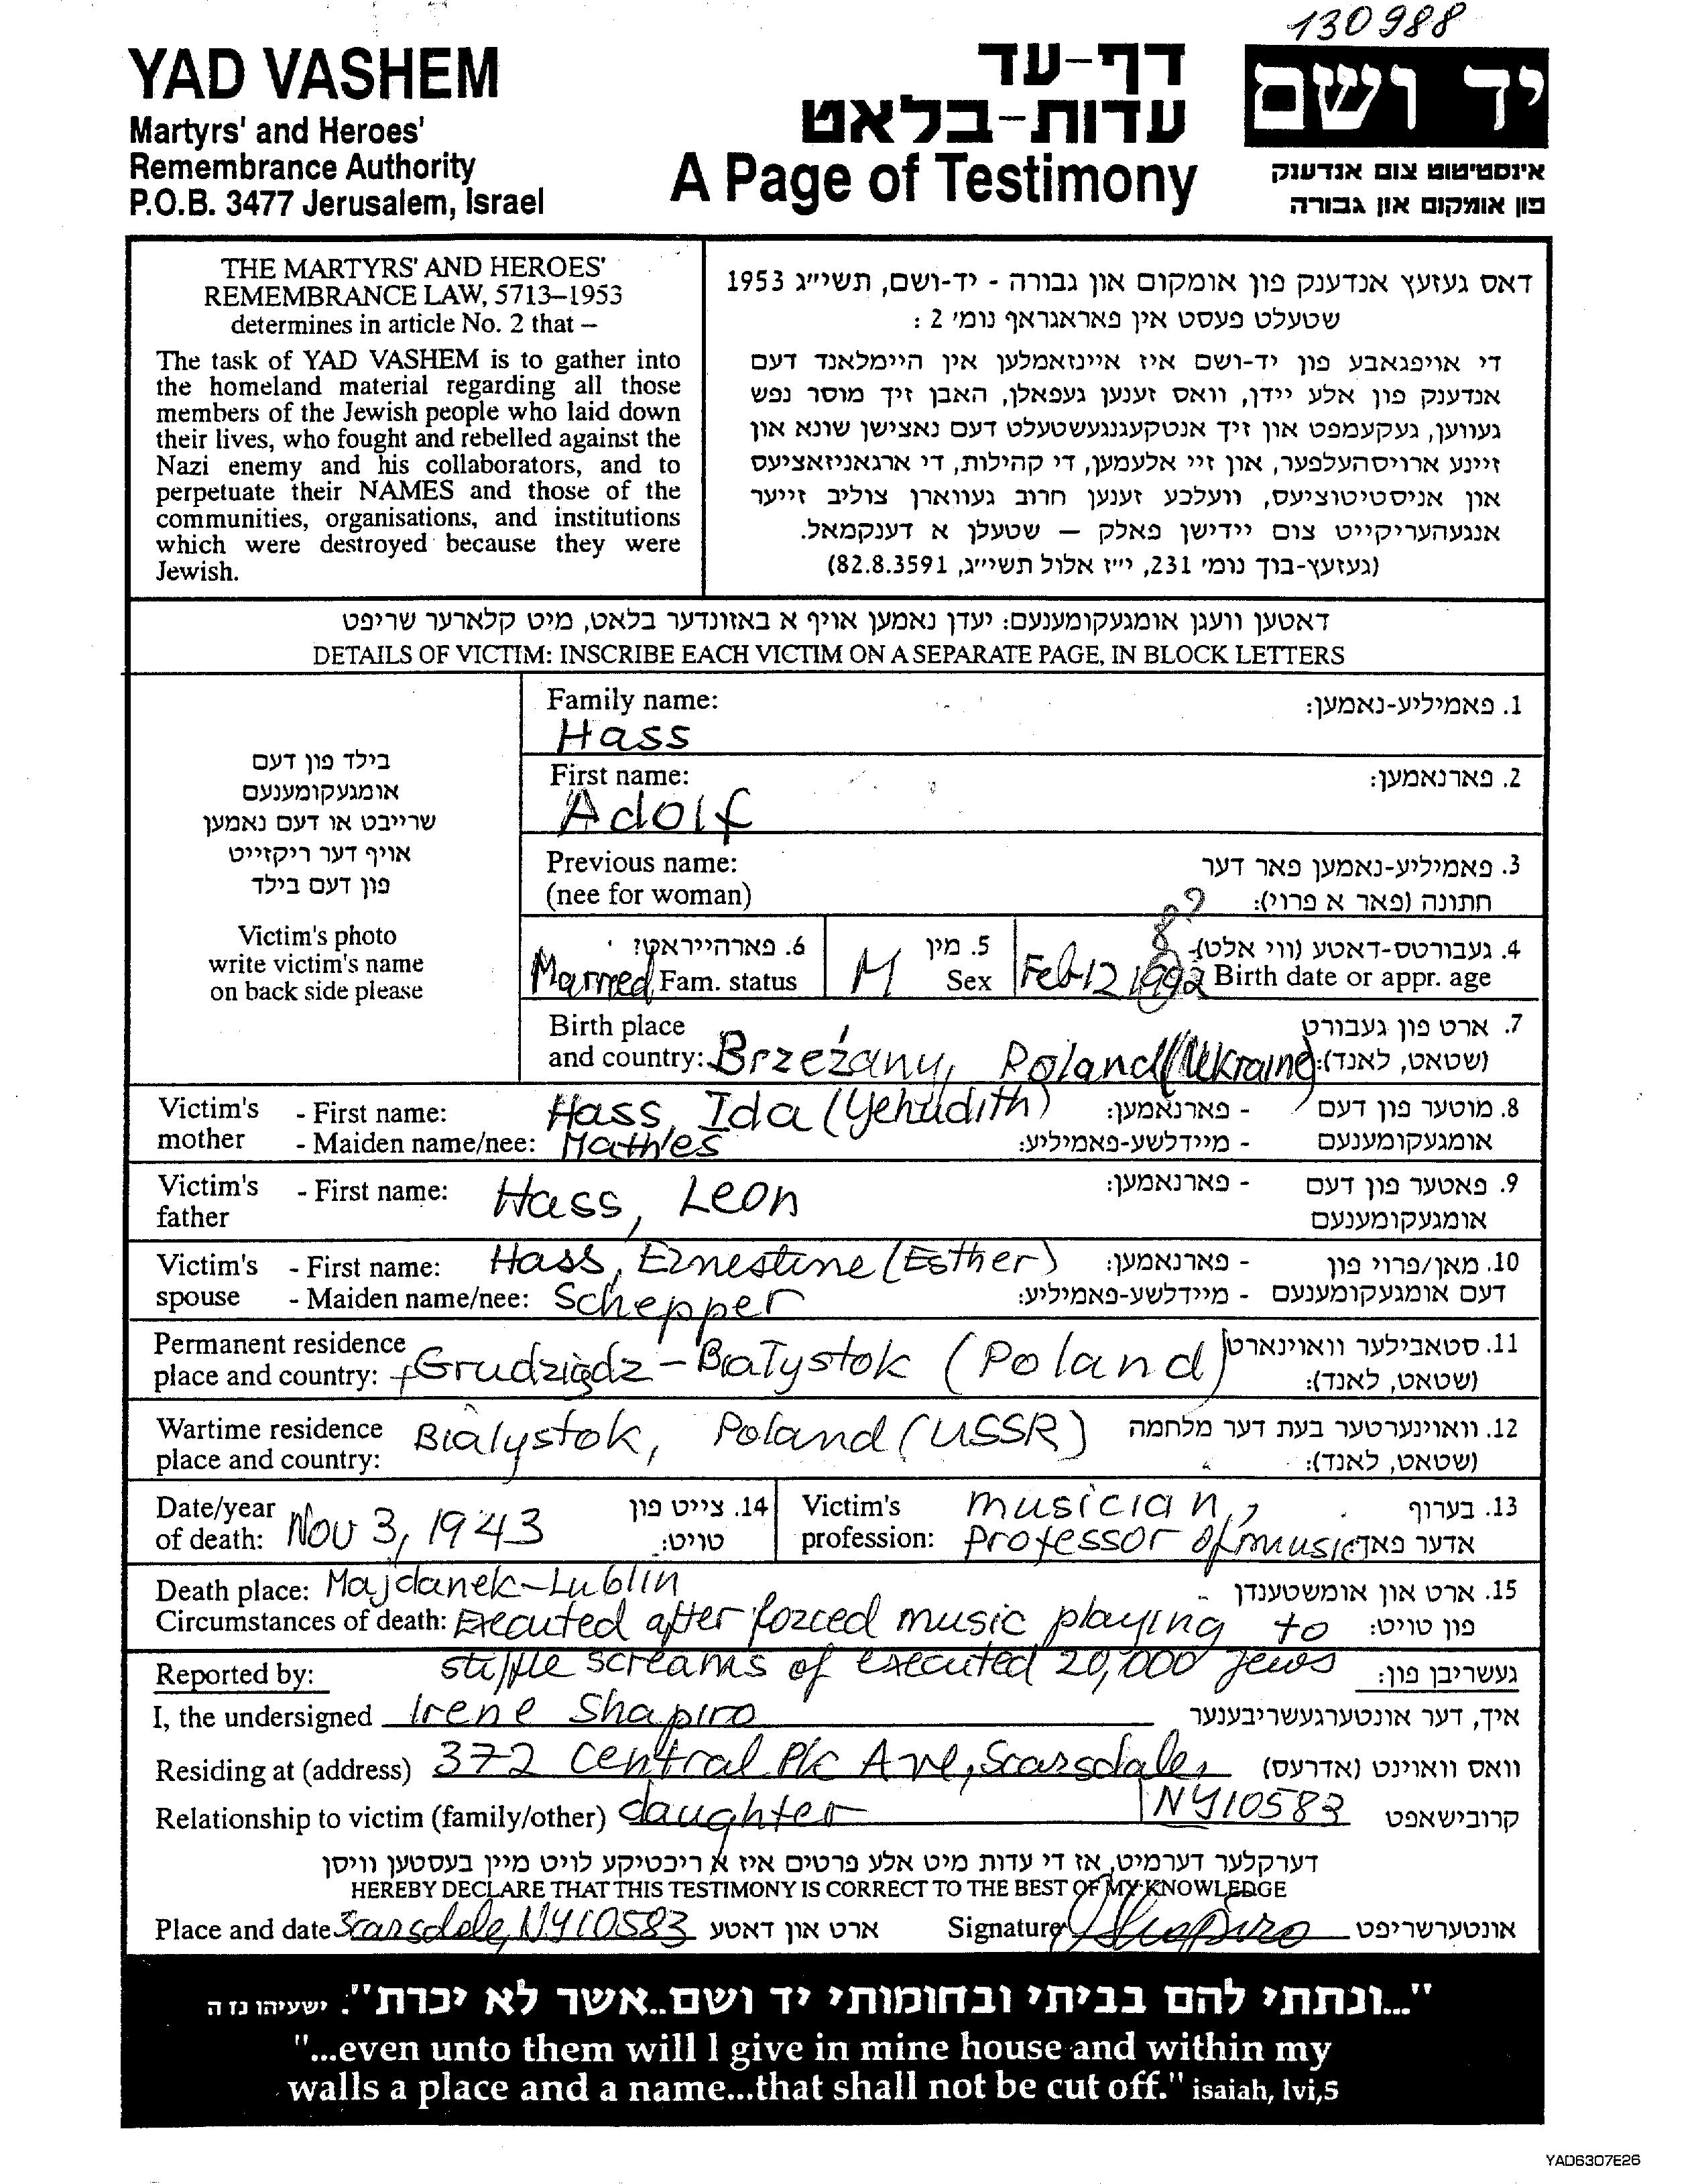 130988
YAD VASHEM
Martyrs' and Heroes'
Remembrance Authority
P.O.B. 3477 Jerusalem, Israel
דף-עד
עדות-בלאט
A Page of Testimony
יד ושם
אינסטיטוט צום אנדענק
פון אומקום און גבורה
THE MARTYRS' AND HEROES'
REMEMBRANCE LAW, 5713–1953
determines in article No. 2 that –
The task of YAD VASHEM is to gather into
the homeland material regarding all those
members of the Jewish people who laid down
their lives, who fought and rebelled against the
Nazi enemy and his collaborators, and to
perpetuate their NAMES and those of the
communities, organisations, and institutions
which were destroyed because they were
Jewish.
דאס געזעץ אנדענק פון אומקום און גבורה - יד-ושם, תשי״ג 1953
שטעלט פעסט אין פאראגראף נומ׳ 2 :
די אויפגאבע פון יד-ושם איז איינזאמלען אין היימלאנד דעם
אנדענק פון אלע יידן, וואס זענען געפאלן, האבן זיך מוסר נפש
געווען, געקעמפט און זיך אנטקעגנגעשטעלט דעם נאצישן שונא און
זיינע ארויסהעלפער, און זיי אלעמען, די קהילות, די ארגאניזאציעס
און אניסטיטוציעס, וועלכע זענען חרוב געווארן צוליב זייער
אנגעהעריקייט צום יידישן פאלק – שטעלן א דענקמאל.
(געזעץ-בוך נומ׳ 231, י״ז אלול תשי״ג, 82.8.3591)
דאטען וועגן אומגעקומענעם: יעדן נאמען אויף א באזונדער בלאט, מיט קלארער שריפט
DETAILS OF VICTIM: INSCRIBE EACH VICTIM ON A SEPARATE PAGE, IN BLOCK LETTERS
בילד פון דעם
אומגעקומענעם
שרייבט או דעם נאמען
אויף דער ריקזייט
פון דעם בילד
Victim's photo
write victim's name
on back side please
Family name: 1. פאמיליע-נאמען:
Hass
First name: 2. פארנאמען:
Adolf
Previous name: 3. פאמיליע-נאמען פאר דער
(nee for woman) חתונה (פאר א פרוי):
6. פארהייראט? 5. מין 4. געבורטס-דאטע (ווי אלט)
Married Fam. status M Sex Feb 12 Birth date or appr. age
Birth place 7. ארט פון געבורט
and country: Brzeżany, Poland (Ukraine) (שטאט, לאנד):
Victim's - First name: Hass, Ida (Yehudith) - פארנאמען: 8. מוטער פון דעם
mother - Maiden name/nee: Mathles - מיידלשע-פאמיליע: אומגעקומענעם
Victim's - First name: Hass, Leon - פארנאמען: 9. פאטער פון דעם
father אומגעקומענעם
Victim's - First name: Hass, Ernestine (Esther) - פארנאמען: 10. מאן/פרוי פון
spouse - Maiden name/nee: Schepper - מיידלשע-פאמיליע: דעם אומגעקומענעם
Permanent residence 11. סטאבילער וואוינארט
place and country: Grudziądz - Białystok (Poland) (שטאט, לאנד):
Wartime residence Bialystok, Poland (USSR) 12. וואוינערטער בעת דער מלחמה
place and country: (שטאט, לאנד):
Date/year 14. צייט פון Victim's musician, 13. בערוף
of death: Nov 3, 1943 טויט: profession: Professor of music אדער פאך
Death place: Majdanek-Lublin 15. ארט און אומשטענדן
Circumstances of death: Executed after forced music playing to פון טויט:
Reported by: stifle screams of executed 20,000 Jews געשריבן פון:
I, the undersigned Irene Shapiro איך, דער אונטערגעשריבענער
Residing at (address) 372 Central Pk Ave, Scarsdale, וואס וואוינט (אדרעס)
Relationship to victim (family/other) daughter NY10583 קרובישאפט
דערקלער דערמיט, אז די עדות מיט אלע פרטים איז א ריכטיקע לויט מיין בעסטען וויסן
HEREBY DECLARE THAT THIS TESTIMONY IS CORRECT TO THE BEST OF MY KNOWLEDGE
Place and date Scarsdale, NY10583 ארט און דאטע Signature IShapiro אונטערשריפט
"...ונתתי להם בביתי ובחומותי יד ושם..אשר לא יכרת". ישעיהו נז ה
"...even unto them will I give in mine house and within my
walls a place and a name...that shall not be cut off." isaiah, lvi,5
YAD6307E26